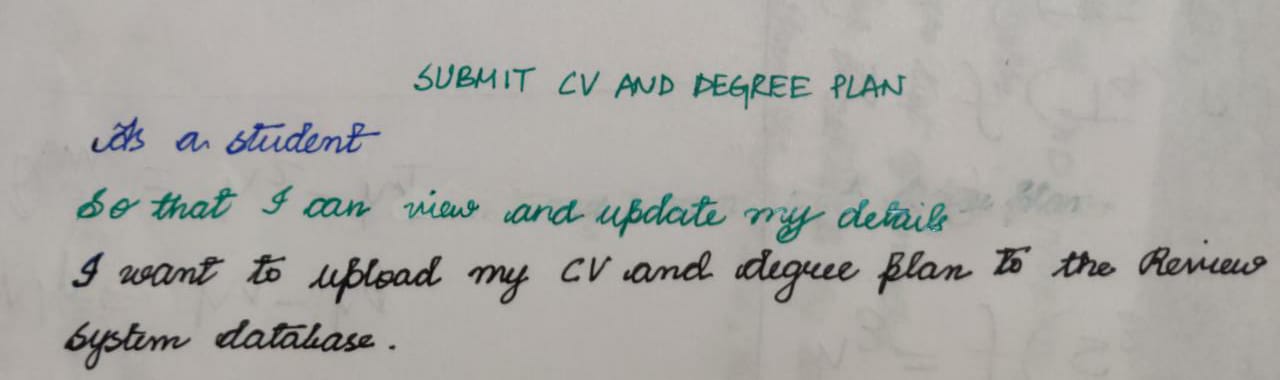 SUBMIT CV AND DEGREE PLAN
As a student
So that I can view and update my details
I want to upload my CV and degree plan to the Review
System database.